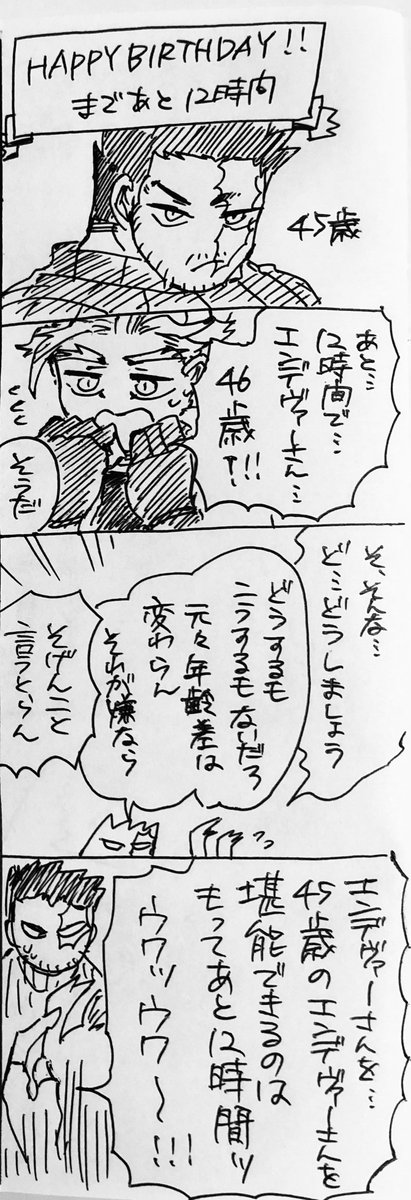 HAPPY BIRTHDAY!!
まであと12時間
45歳
あと…
12時間で…
エンデヴァーさん…
46歳
!!!
そうだ
そ、そんな…
ど…どうしましょう
どうするも
こうするもないだろ
元々年齢差は
変わらん
それが嫌なら
そげんこと
言うとらん
エンデヴァーさんを…
45歳のエンデヴァーさんを
堪能できるのは
もってあと12時間ッ
ウワッウワ〜!!!